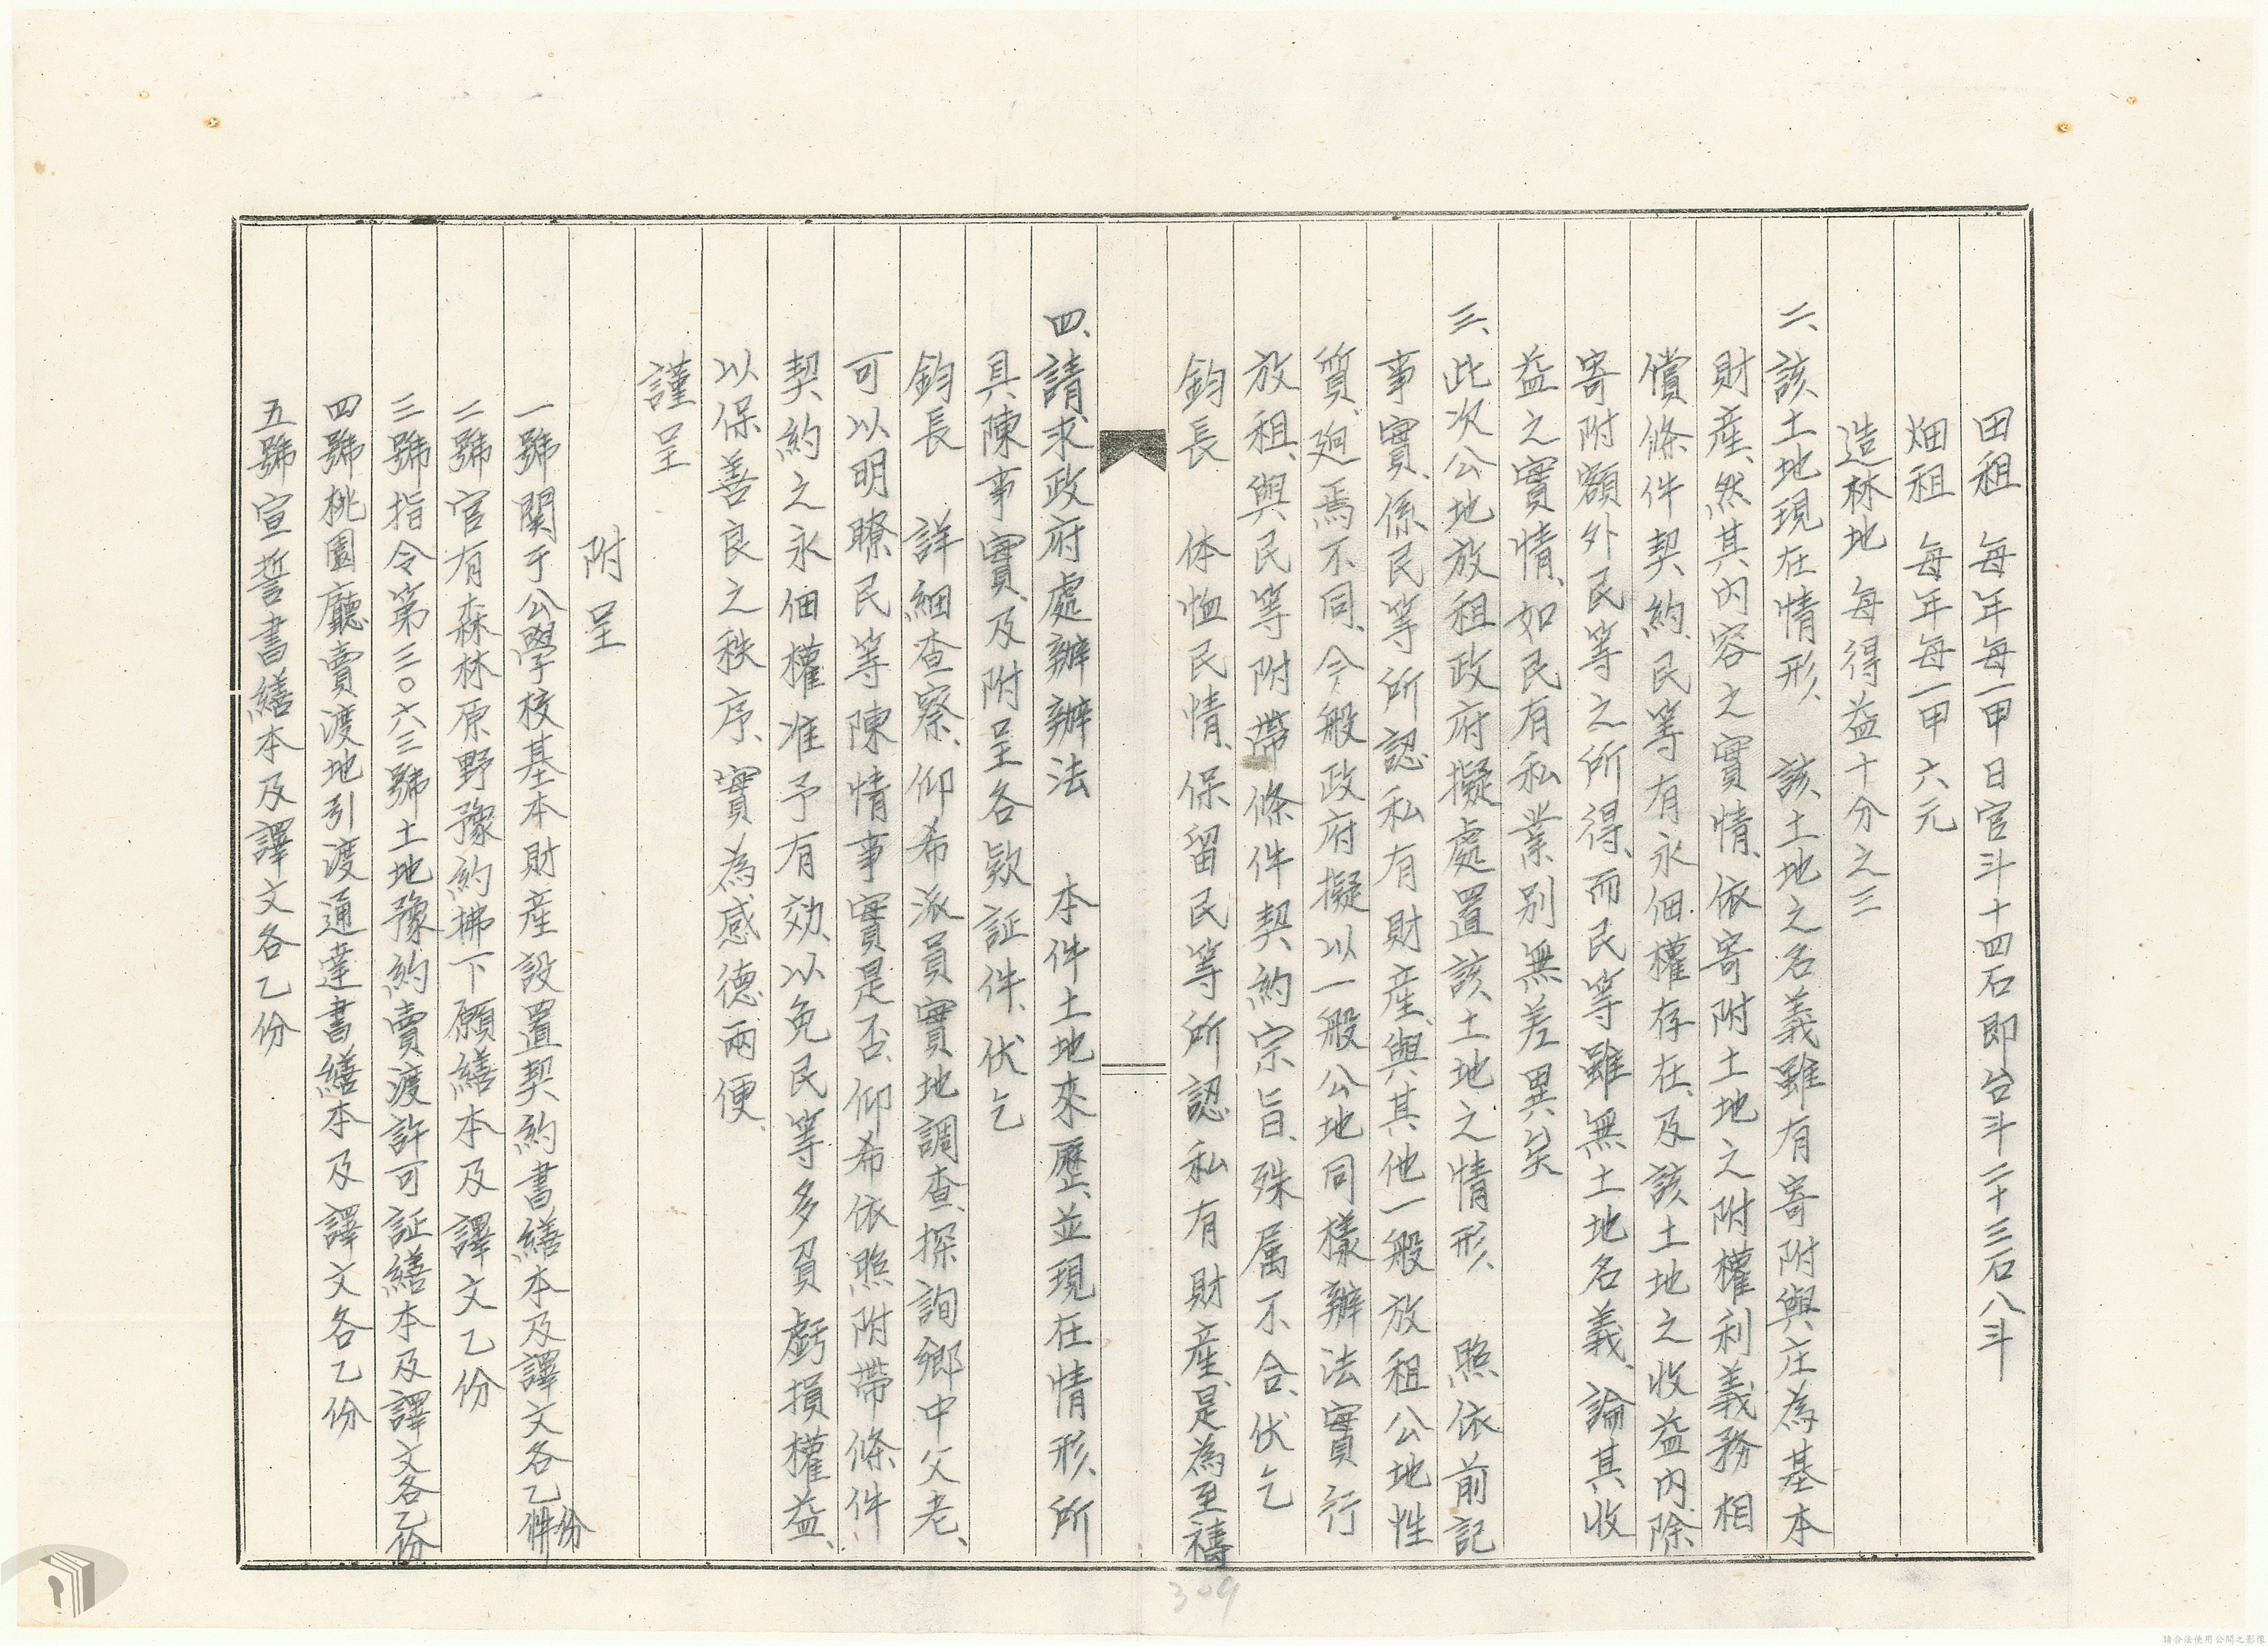 田租　每年每一甲日官斗十四石即台斗二十三石八斗
畑租　每年每一甲六元
造林地　每得益十分之三
二、該土地現在情形、　該土地之名義雖有寄附與庄為基本
財產、然其內容之實情、依寄附土地之附權利義務相
償條件契約、民等有永佃權存在、及該土地之收益內、除
寄附額外民等之所得、而民等雖無土地名義、論其收
益之實情、如民有私業別無差異矣
三、此次公地放租政府擬處置該土地之情形、　照依前記
事實、係民等所認私有財產、與其他一般放租公地性
質、廻焉不同、今般政府擬以一般公地同樣辦法實行
放租、與民等附帶條件契約宗旨、殊属不合、伏乞
鈞長　体恤民情、保留民等所認私有財產、是為至禱
四、請求政府處辦辦法　本件土地來歷、並現在情形、所
具陳事實、及附呈各欵証件、伏乞
鈞長　詳細查察、仰希派員實地調查、探詢鄉中父老、
可以明瞭民等陳情事實是否、仰希依照附帶條件
契約之永佃權准予有効、以免民等多負虧損權益、
以保善良之秩序、實為感德兩便、
謹呈
附呈
一號關于公學校基本財產設置契約書繕本及譯文各乙件份
二號官有森林原野豫約拂下願繕本及譯文乙份
三號指令第三〇六三號土地豫約賣渡許可証繕本及譯文各乙份
四號桃園廳賣渡地引渡通達書繕本及譯文各乙份
五號宣誓書繕本及譯文各乙份
309
請合法使用公開之影像